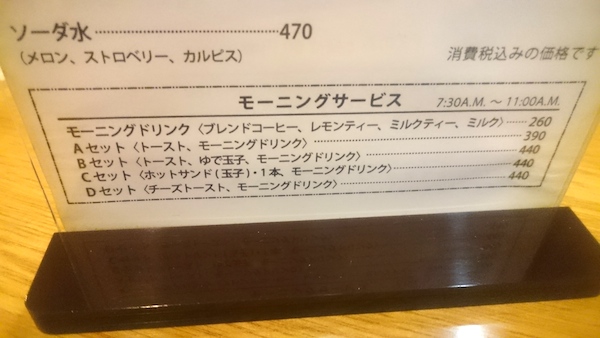 ソーダ水……………………………470
（メロン、ストロベリー、カルピス）
消費税込みの価格です
モーニングサービス 7:30A.M. 〜 11:00A.M.
モーニングドリンク〈ブレンドコーヒー、レモンティー、ミルクティー、ミルク〉……260
Aセット〈トースト、モーニングドリンク〉……………………………390
Bセット〈トースト、ゆで玉子、モーニングドリンク〉……………………440
Cセット〈ホットサンド(玉子)・1本、モーニングドリンク〉………………440
Dセット〈チーズトースト、モーニングドリンク〉…………………………440